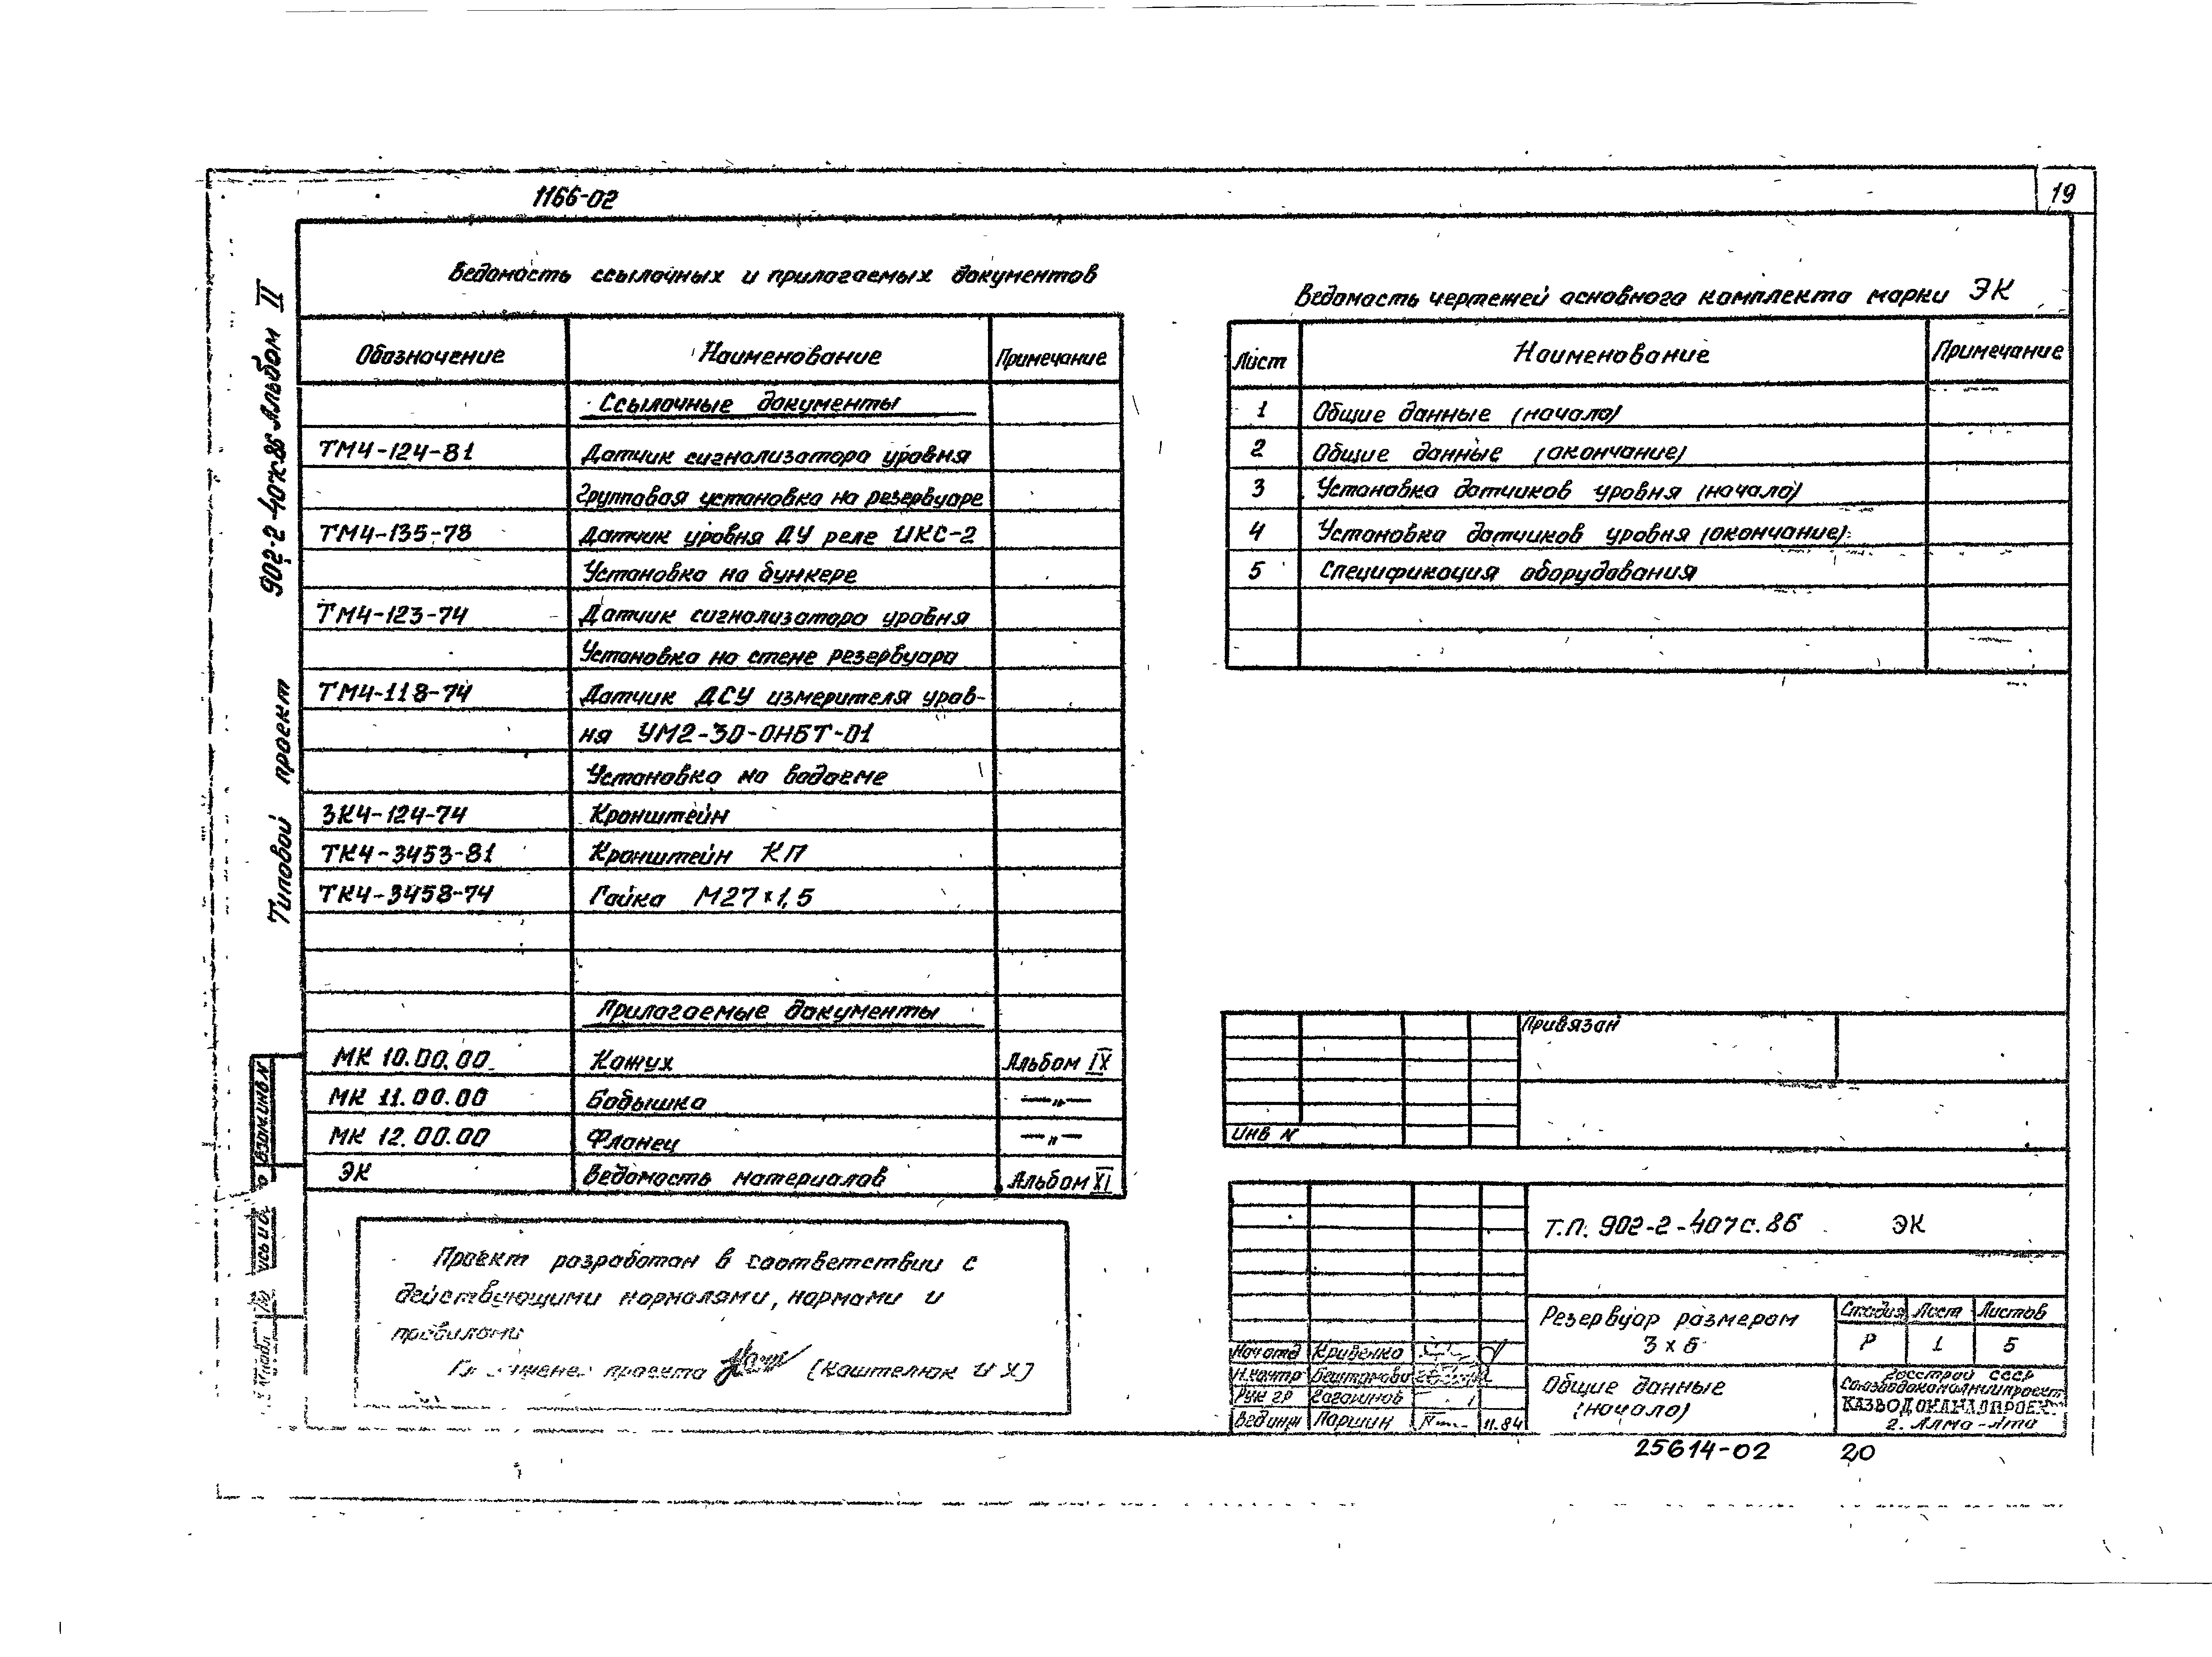 1166-02
19
Типовой проект 902-2-407с.86 Альбом II
Ведомость ссылочных и прилагаемых документов
Обозначение Наименование Примечание
Ссылочные документы
ТМ4-124-81 Датчик сигнализатора уровня
Групповая установка на резервуаре
ТМ4-135-78 Датчик уровня ДУ реле ИКС-2
Установка на бункере
ТМ4-123-74 Датчик сигнализатора уровня
Установка на стене резервуара
ТМ4-118-74 Датчик ДСУ измерителя уров-
ня УМ2-30-ОНБТ-01
Установка на водоеме
ЗК4-124-74 Кронштейн
ТК4-3453-81 Кронштейн КП
ТК4-3458-74 Гайка М27×1,5
Прилагаемые документы
МК 10.00.00 Кожух Альбом IX
МК 11.00.00 Бобышка —„—
МК 12.00.00 Фланец —„—
ЭК Ведомость материалов Альбом XI
Проект разработан в соответствии с
действующими нормалями, нормами и
правилами
проекта (Каштелюк И Х)
Ведомость чертежей основного комплекта марки ЭК
Лист Наименование Примечание
1 Общие данные (начало)
2 Общие данные (окончание)
3 Установка датчиков уровня (начало)
4 Установка датчиков уровня (окончание)
5 Спецификация оборудования
Привязан
Инв N
Т.П. 902-2-407с.86 ЭК
Резервуар размером
3 х 6
Стадия Лист Листов
Р 1 5
Общие данные
(начало)
Госстрой СССР
Союзводоканалниипроект
КАЗВОДОКАНАЛПРОЕКТ
г. Алма-Ата
Нач отд Кривенко
Н.контр
Рук гр
Вед инж Паршин 11.84
Взам.инв N
25614-02 20